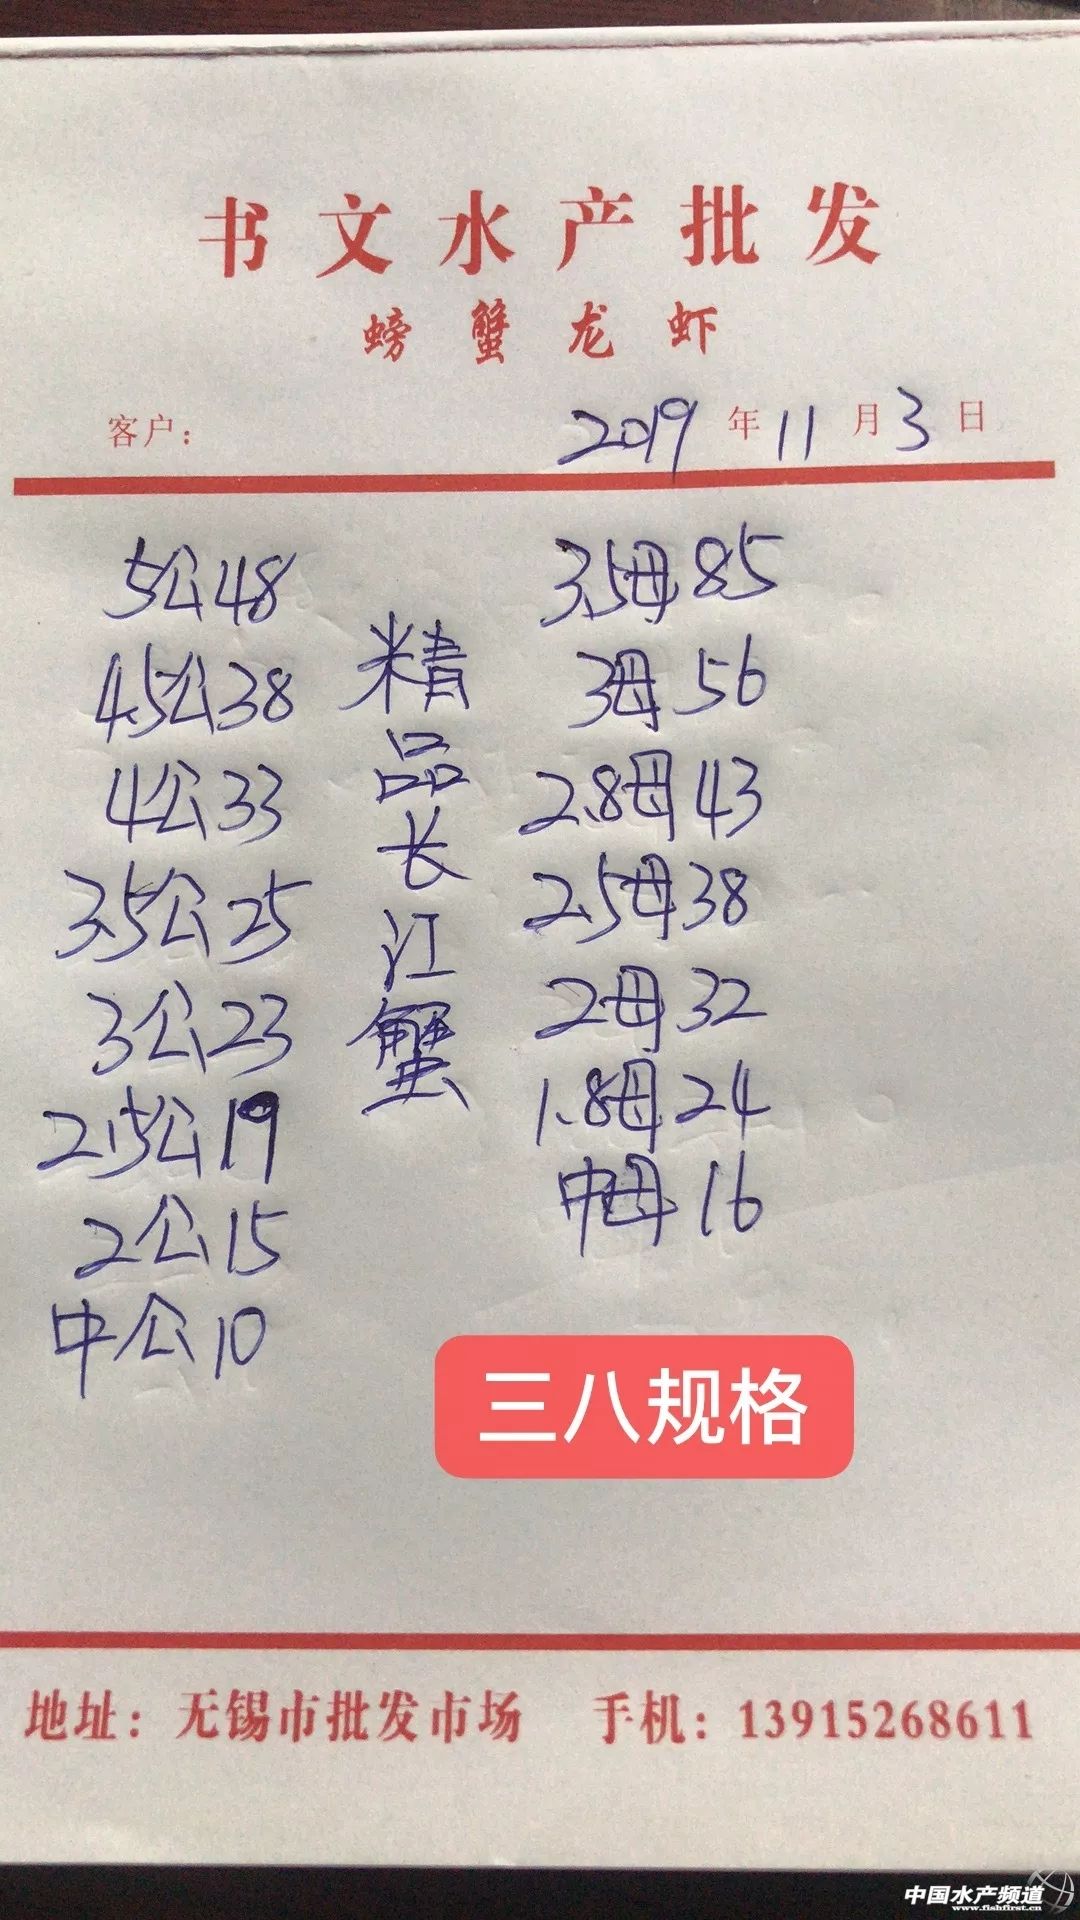 书文水产批发
螃蟹龙虾
客户： 2019年11月3日
5公48
4.5公38
4公33
3.5公25
3公23
2.5公19
2公15
中公10
精品长江蟹
3.5母85
3母56
2.8母43
2.5母38
2母32
1.8母24
中母16
三八规格
地址：无锡市批发市场 手机：13915268611
中国水产频道
www.fishfirst.cn